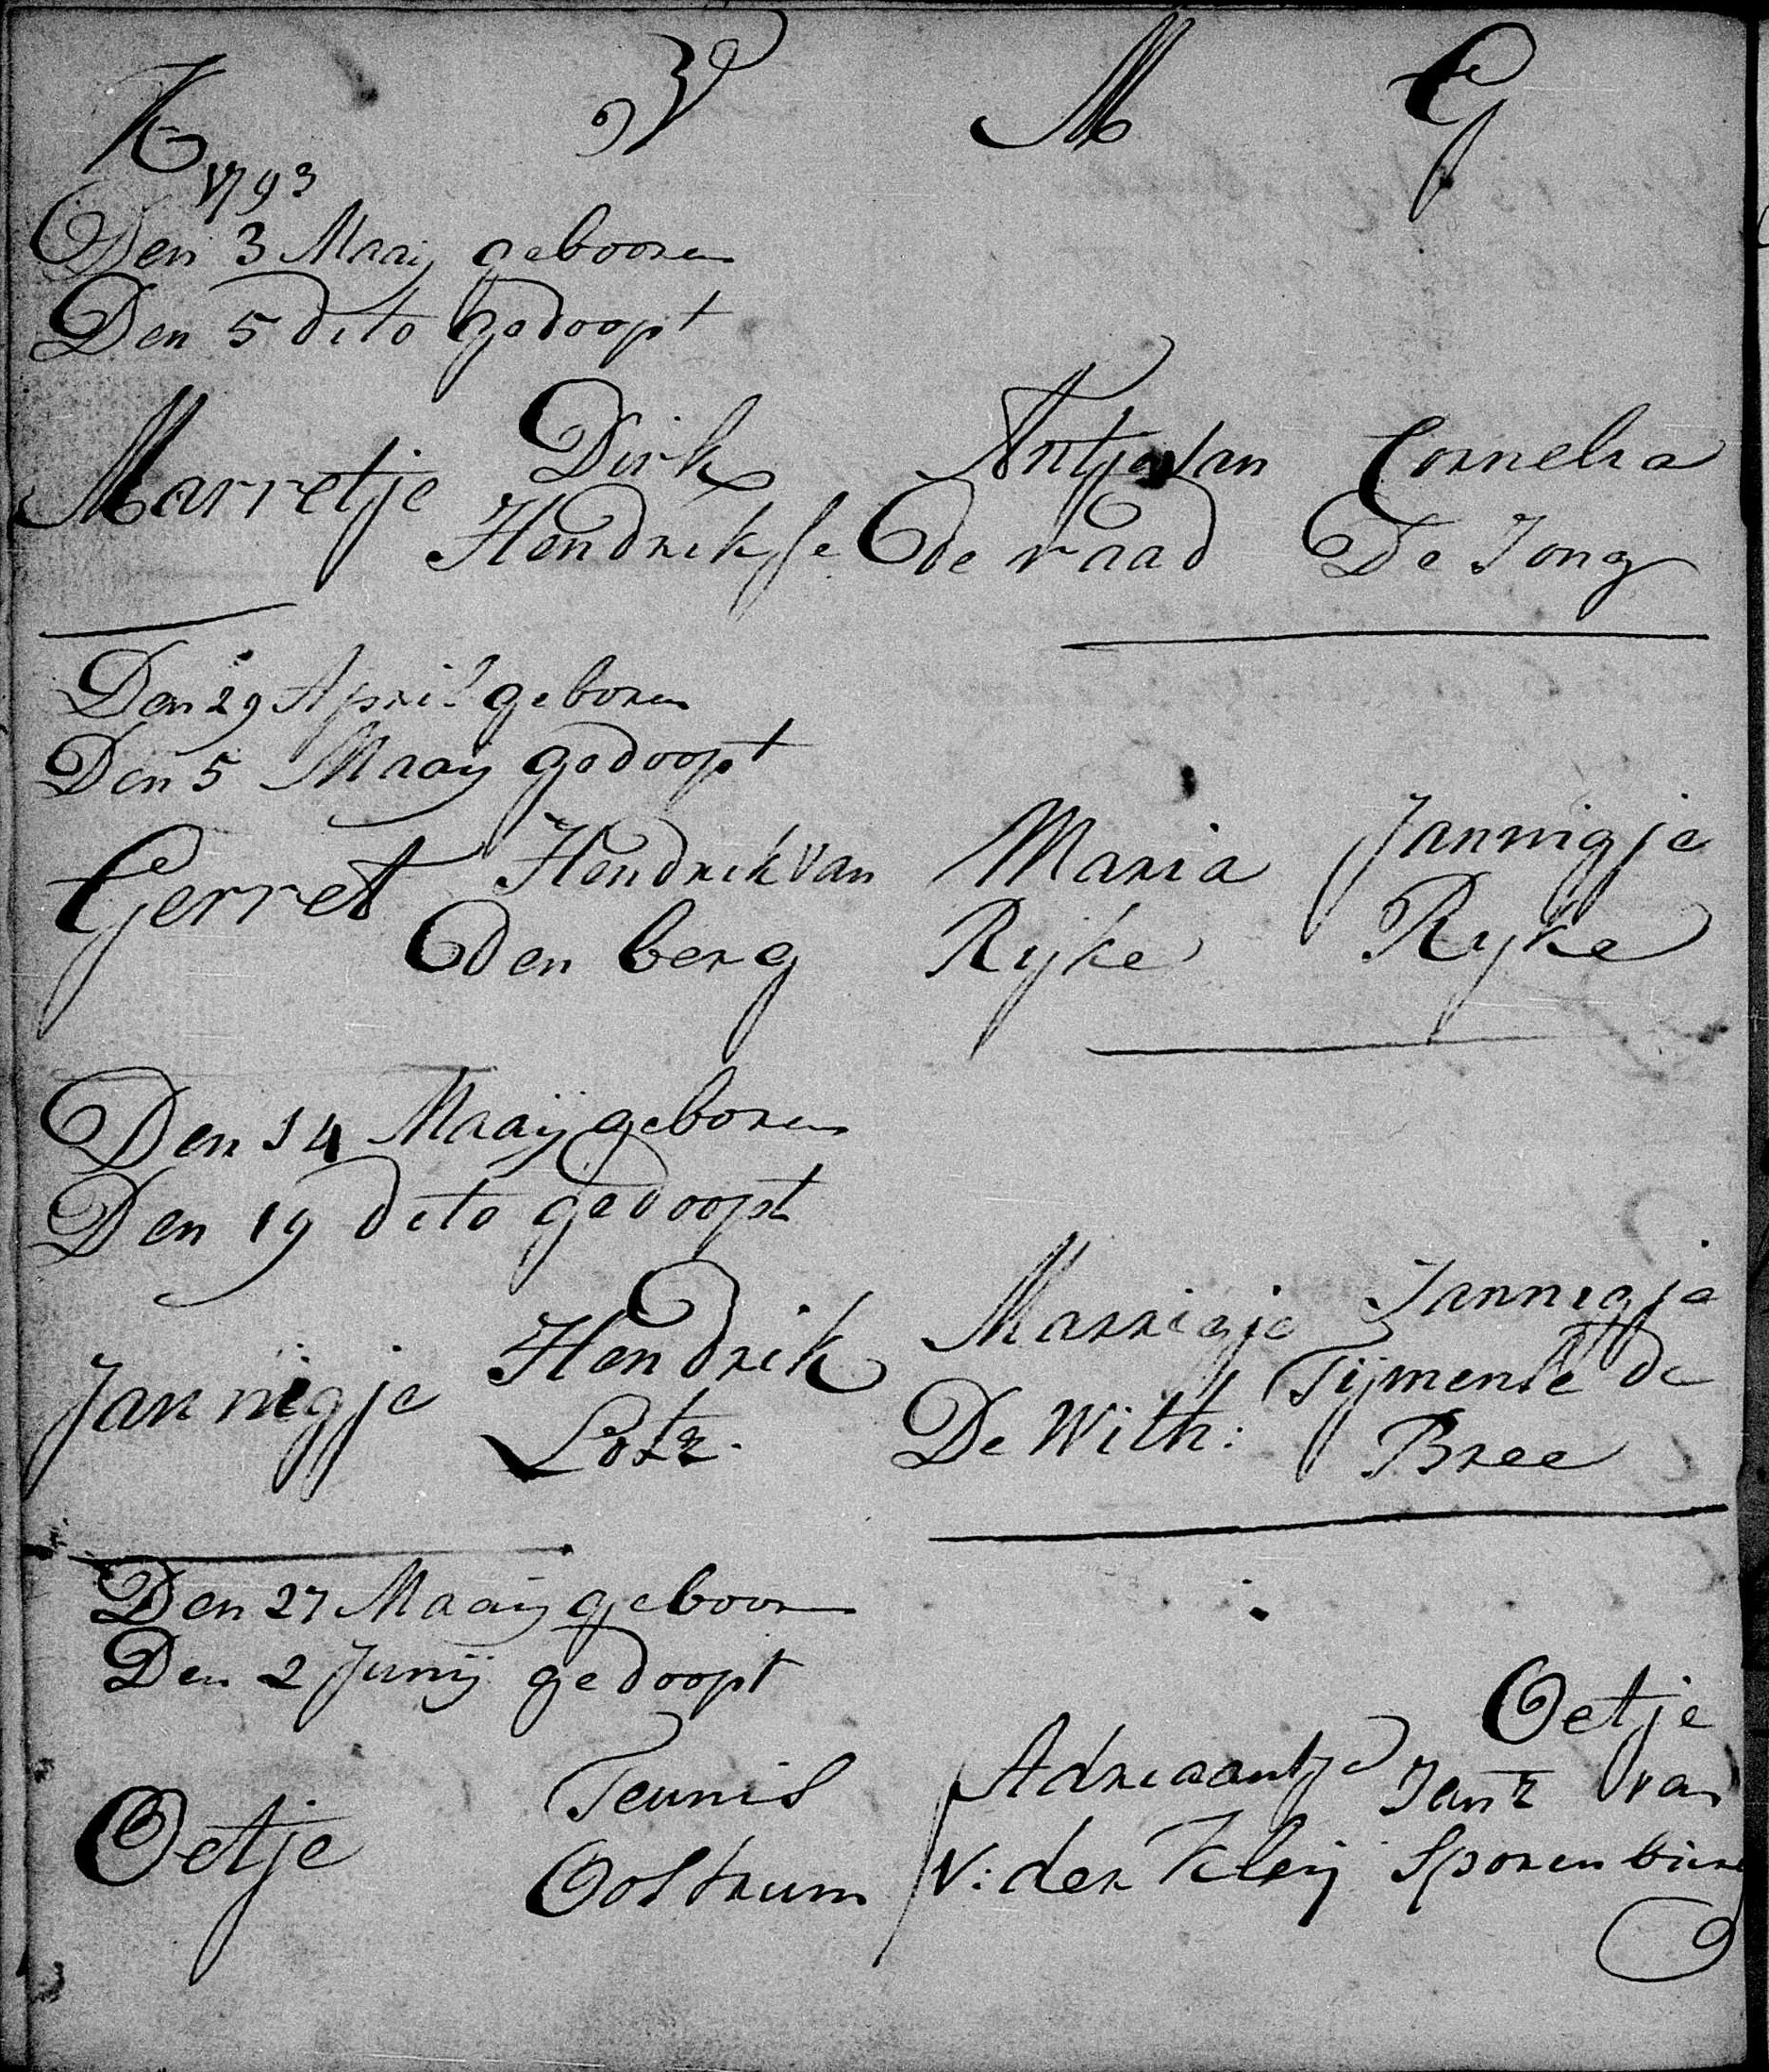 K V M G
1793
Den 3 Maaij gebooren
Den 5 dito gedoopt
Marretje Dirk Antje van Cornelia
Hendrikse de raad De Jong
Den 29 April geboren
Den 5 Maaij gedoopt
Gerret Hendrik van Maria Jannigje
den berg Rijke Ryke
Den 14 Maaij geboren
Den 19 dito gedoopt
Jannigje Hendrik Marrigje Jannigje
Lotz. De With: Tijmense de
Bree
Den 27 Maaij gebooren
Den 2 Junij gedoopt
Oetje
Oetje Teunis Adriaantje Janz van
Oostrum v: der Kleij Sporenburg